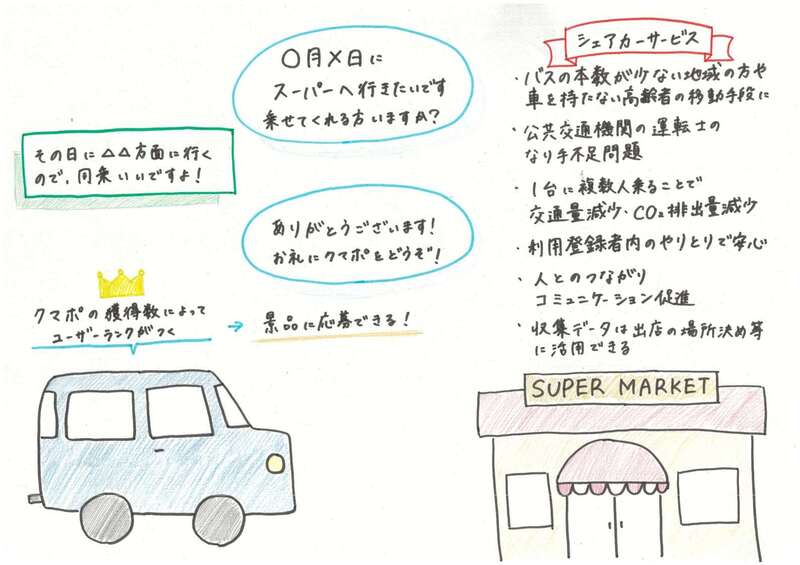 〇月×日に
スーパーへ行きたいです
乗せてくれる方いますか？
その日に△△方面に行く
ので、同乗いいですよ！
ありがとうございます！
お礼にクマポをどうぞ！
クマポの獲得数によって
ユーザーランクがつく
→ 景品に応募できる！
シェアカーサービス
・バスの本数が少ない地域の方や
車を持たない高齢者の移動手段に
・公共交通機関の運転士の
なり手不足問題
・1台に複数人乗ることで
交通量減少・CO₂排出量減少
・利用登録者内のやりとりで安心
・人とのつながり
コミュニケーション促進
・収集データは出店の場所決め等
に活用できる
SUPER MARKET